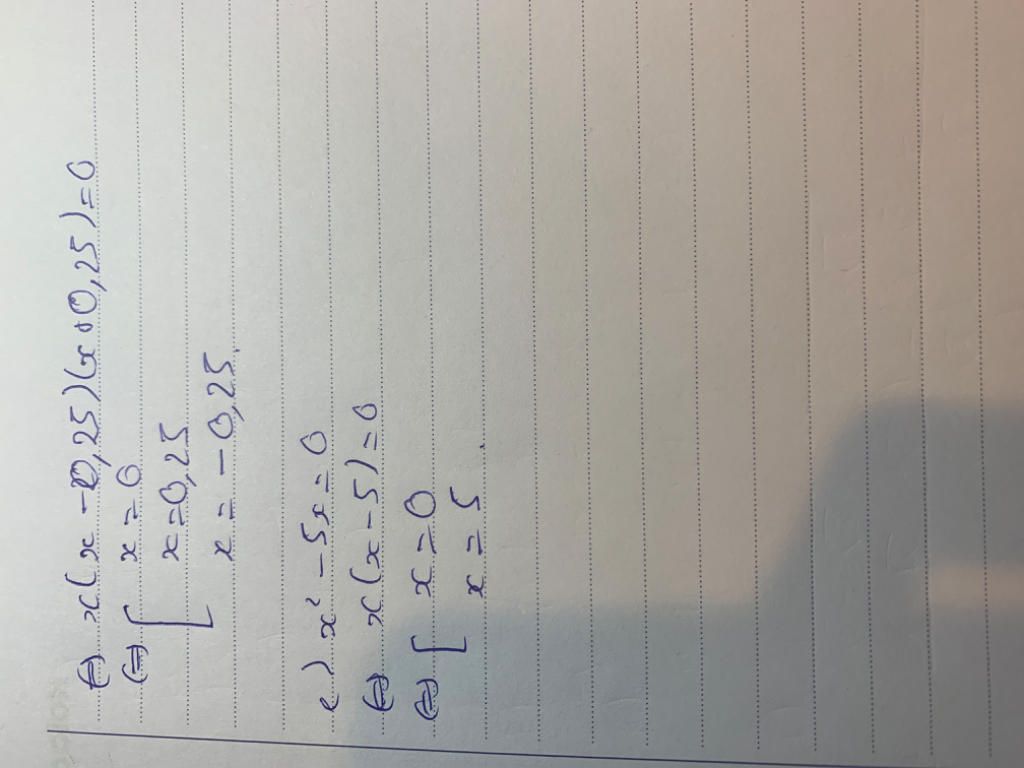 ⇔ x(x - 0,25)(x + 0,25) = 0
⇔ [ x = 0
x = 0,25
x = - 0,25.
e) x² - 5x = 0
⇔ x(x - 5) = 0
⇔ [ x = 0
x = 5.